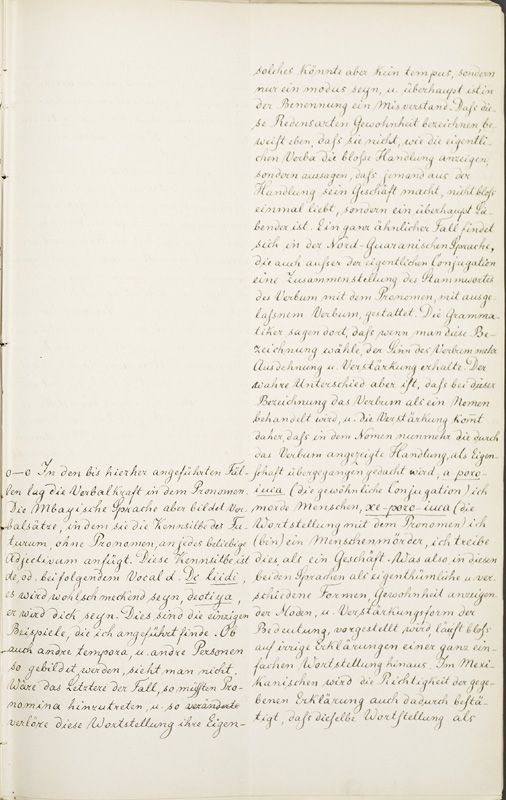 solches könnte aber kein tempus, sondern
nur ein modus seyn, u. überhaupt ist in
der Benennung ein Misverstand. Daſs die-
se Redensarten Gewohnheit bezeichnen, be-
weiſt eben, daſs sie nicht, wie die eigentli-
chen Verba die bloſse Handlung anzeigen,
sondern aussagen, daſs jemand aus der
Handlung sein Geschäft macht, nicht bloſs
einmal liebt, sondern ein überhaupt Lie-
bender ist. Ein ganz ähnlicher Fall findet
sich in der Nord-Guaranischen Sprache,
die auch auſser der eigentlichen Conjugation
eine Zusammenstellung des Stammwortes
des Verbum mit dem Pronomen, mit ausge-
laſsnem Verbum, gestattet. Die Gramma-
tiker sagen dort, daſs wenn man diese Be-
zeichnung wähle, der Sinn des Verbum mehr
Ausdehnung u. Verstärkung erhalte. Der
wahre Unterschied aber iſt, daſs bei dieser
Bezeichnung das Verbum als ein Nomen
behandelt wird, u. die Verstärkung kom̅t
daher, daſs in dem Nomen nunmehr die durch
das Verbum angezeigte Handlung, als Eigen-
ſchaft übergegangen gedacht wird, a poro-
iuca (die gewöhnliche Conjugation) ich
morde Menschen, xe-poro-iuca (die
Wortstellung mit dem Pronomen) ich
(bin) ein Menschenmörder, ich treibe
dies, als ein Geschäft. Was also in diesen
beiden Sprachen als eigenthümliche u. ver-
schiedene Formen, Gewohnheit anzeigen-
der Moden, u. Verstärkungsform der
Bedeutung, vorgestellt wird, läuft bloſs
auf irrige Erklärungen einer ganz ein-
fachen Wortstellung hinaus. Im Mexi-
kanischen wird die Richtigkeit der gege-
benen Erklärung auch dadurch beſtä-
tigt, daſs dieſelbe Wortſtellung als
o—o In den bis hierher angeführten Fäl-
len lag die Verbalkraft in dem Pronomen.
Die Mbayische Sprache aber bildet Ver-
balsätze, in dem sie die Kennsilbe des Fu-
turum, ohne Pronomen, an jedes beliebige
Adjectivum anfügt. Diese Kennsilbe ist
de, od. bei folgendem Vocal d. De liidi,
es wird wohlschmeckend seyn, deotiya,
er wird dick seyn. Dies sind die einzigen
Beispiele, die ich angeführt finde. Ob
auch andre tempora, u. andre Personen
so gebildet werden, sieht man nicht.
Wäre das Letztere der Fall, so müſsten Pro-
nomina hinzutreten, u. so veränderte
verlöre diese Wortstellung ihre Eigen-